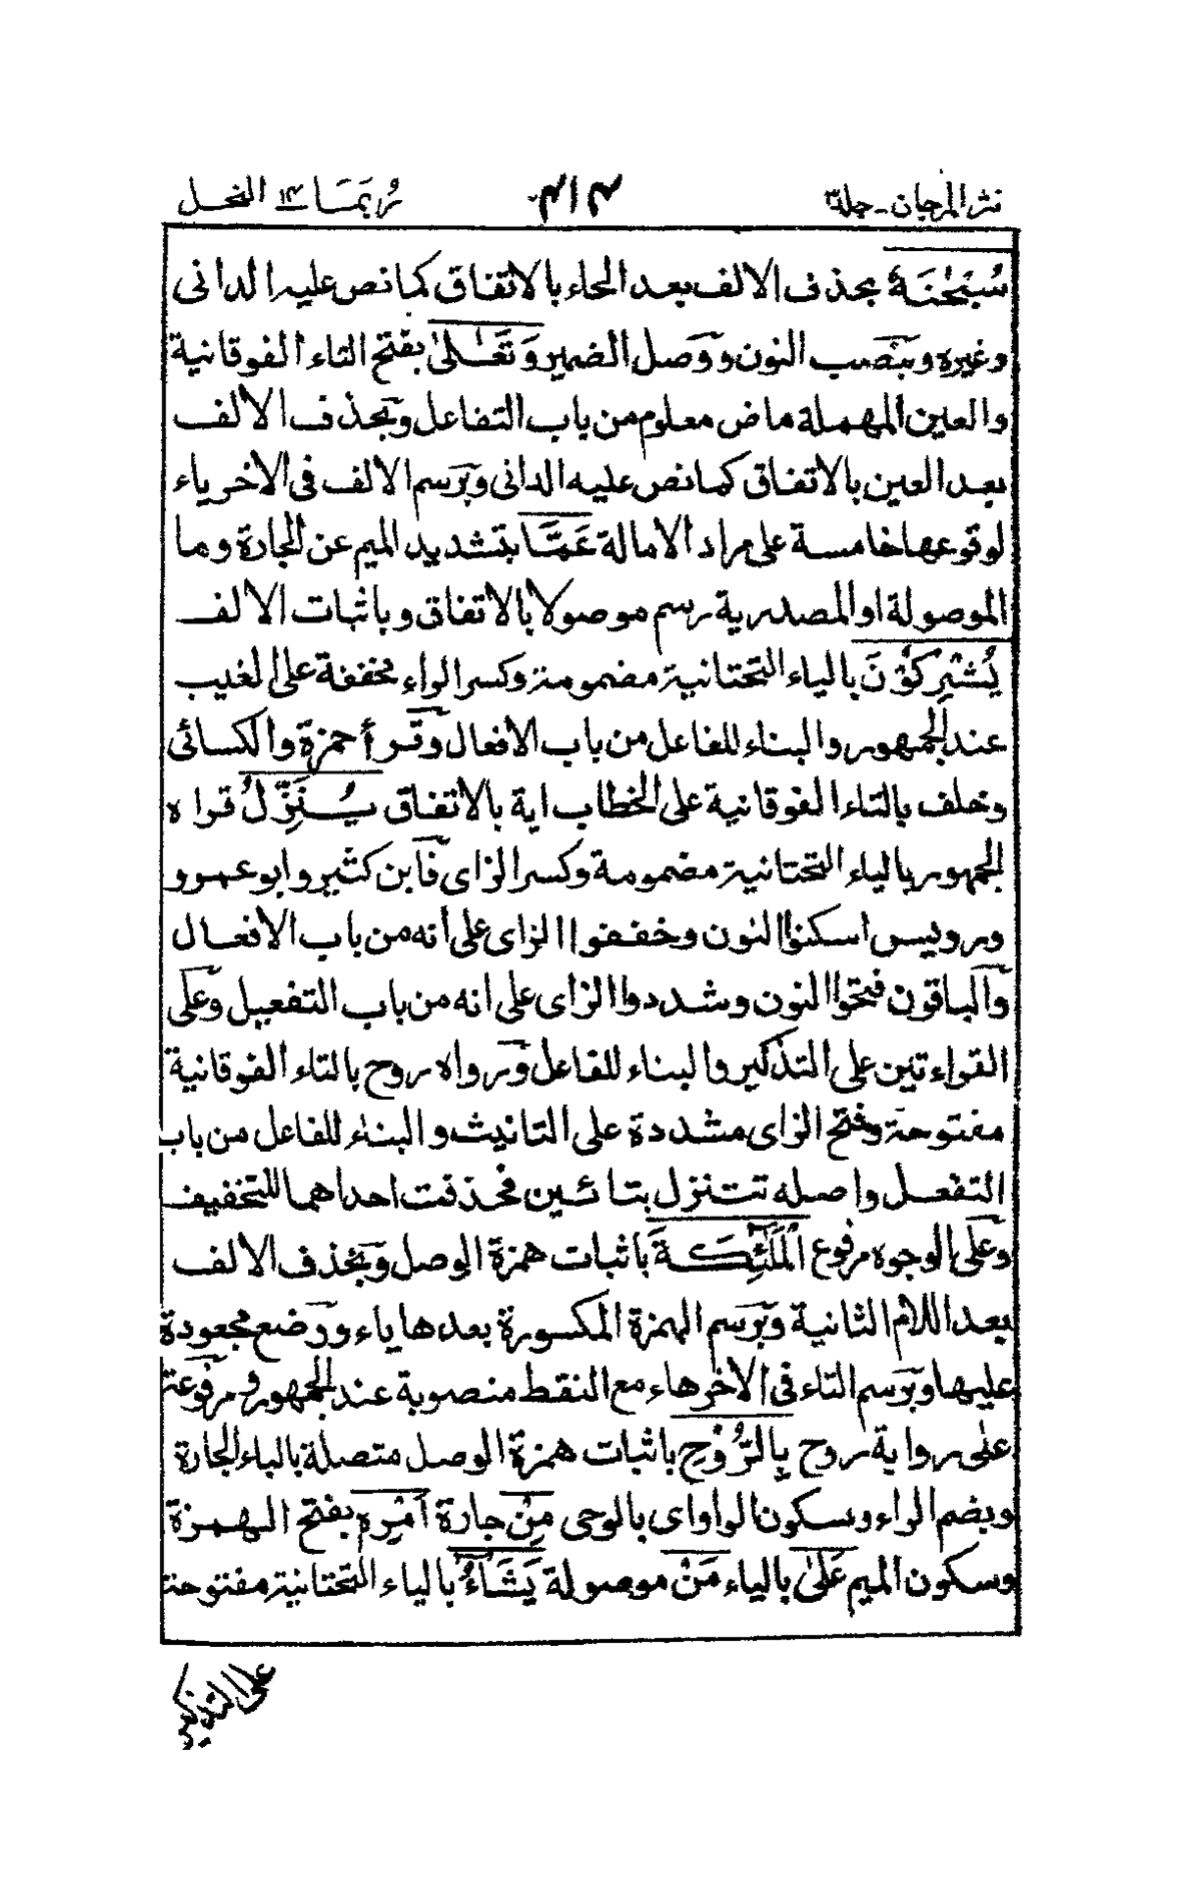 نثر المرجان - جلد٣ ٣١٤ ربما ١٤ النحل
سُبْحٰنَهٗ بحذف الالف بعد الحاء بالاتفاق كما نص عليه الدانى
وغيره وبنصب النون ووصل الضمير وَتَعٰلىٰ بفتح التاء الفوقانية
والعين المهملة ماض معلوم من باب التفاعل وبحذف الالف
بعد العين بالاتفاق كما نص عليه الدانى وبرسم الالف فى الاخر ياء
لوقوعها خامسة على مراد الامالة عَمَّا بتشديد الميم عن الجارة وما
الموصولة او المصدرية رسم موصولا بالاتفاق وباثبات الالف
يُشْرِكُوْنَ بالياء التحتانية مضمومة وكسر الراء مخففة على الغيب
عند الجمهور والبناء للفاعل من باب الافعال وقرأ حمزة والكسائى
وخلف بالتاء الفوقانية على الخطاب اية بالاتفاق يُنَزِّلُ قراه
الجمهور بالياء التحتانية مضمومة وكسر الزاى فابن كثير وابو عمرو
ورويس اسكنوا النون وخففوا الزاى على انه من باب الافعال
والباقون فتحوا النون وشددوا الزاى على انه من باب التفعيل وعلى
القراءتين على التذكير والبناء للفاعل ورواه روح بالتاء الفوقانية
مفتوحة وفتح الزاى مشددة على التانيث والبناء للفاعل من باب
التفعل واصله تتنزل بتائين فحذفت احداهما للتخفيف
وعلى الوجوه مرفوع الْمَلٰٓئِكَةَ باثبات همزة الوصل وبحذف الالف
بعد اللام الثانية وبرسم الهمزة المكسورة بعدها ياء ووضع مجعودة
عليها وبرسم التاء فى الاخر هاء مع النقط منصوبة عند الجمهور ومرفوعة
على رواية روح بِالرُّوْحِ باثبات همزة الوصل متصلة بالباء الجارة
وبضم الراء وسكون الواو اى بالوحى مِنْ جارة اَمْرِهٖ بفتح الهمزة
وسكون الميم عَلىٰ بالياء مَنْ موصولة يَشَآءُ بالياء التحتانية مفتوحة
على التذكير